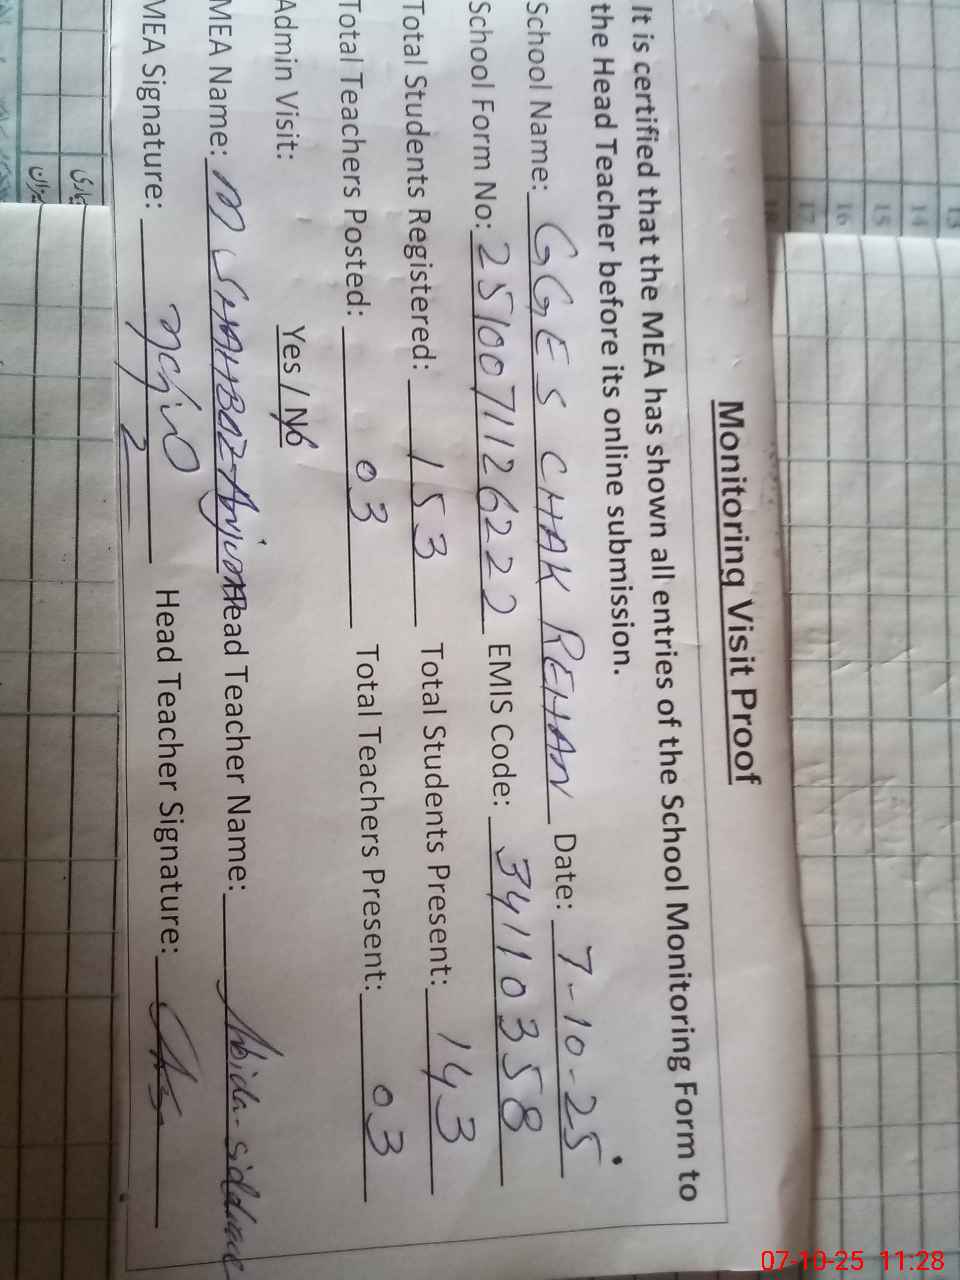 Monitoring Visit Proof
It is certified that the MEA has shown all entries of the School Monitoring Form to
the Head Teacher before its online submission.
School Name: GGES CHAK REHAN Date: 7-10-25
School Form No: 2510071126222 EMIS Code: 34110358
Total Students Registered: 153 Total Students Present: 143
Total Teachers Posted: 03 Total Teachers Present: 03
Admin Visit: Yes / No
MEA Name: M SHAHBAZ Anjum Head Teacher Name: Abida
MEA Signature: Head Teacher Signature:
13
14
15
16
17
18
07-10-25 11:28